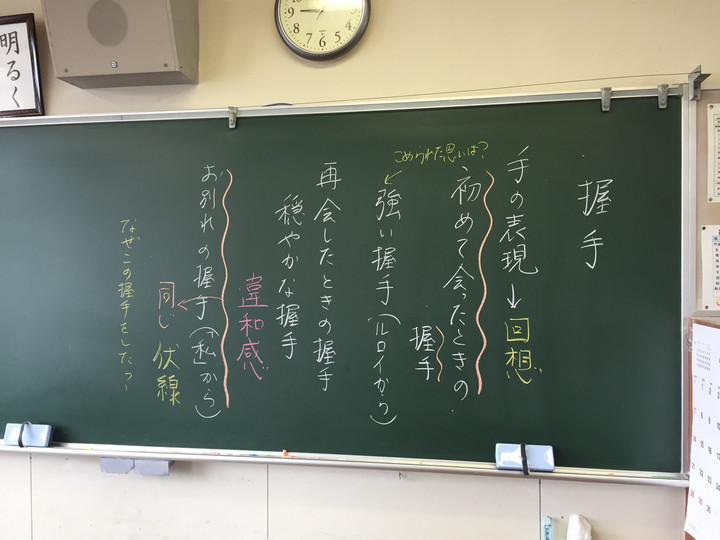 握手
手の表現→回想
初めて会ったときの
握手
こめられた思いは?
強い握手(ルロイから)
再会したときの握手
穏やかな握手
違和感
お別れの握手(「私」から)
同じ 伏線
なぜこの握手をしたのか
明るく